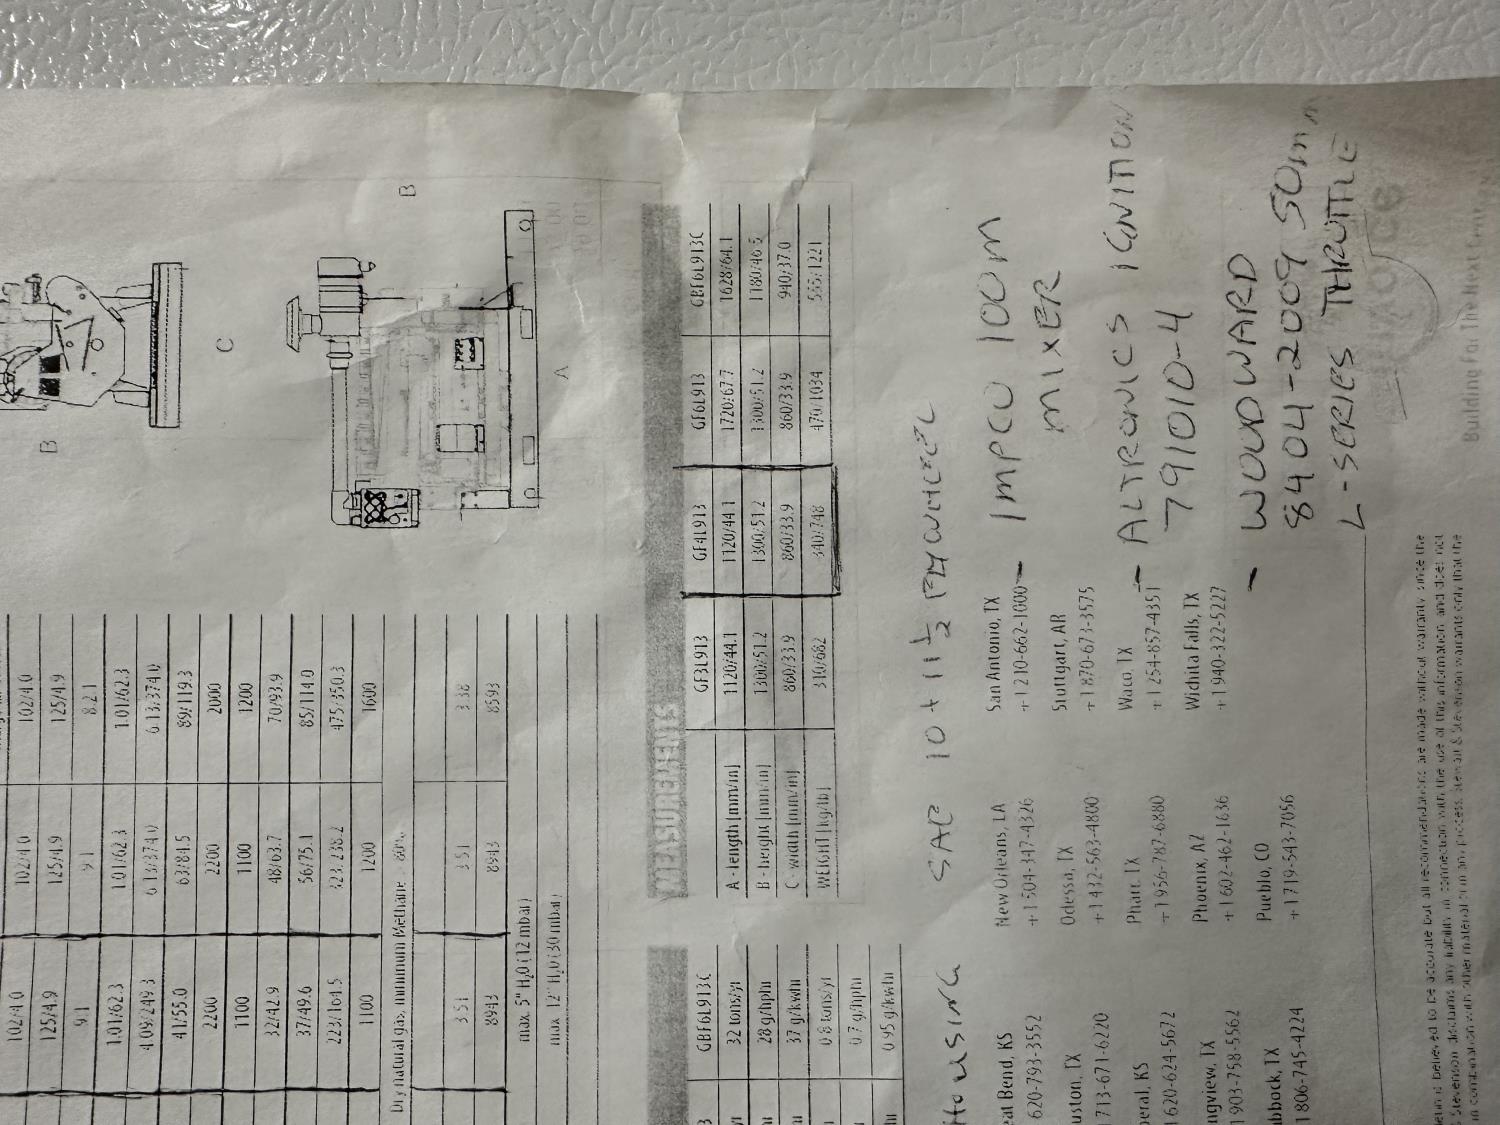 102/4.0 102/4.0 102/4.0
125/4.9 125/4.9 125/4.9
9.1 9.1 8.2:1
1.01/62.3 1.01/62.3 1.01/62.3
4.09/249.3 6.13/374.0 6.13/374.0
41/55.0 63/84.5 89/119.3
2200 2200 2000
1100 1100 1200
32/42.9 48/63.7 70/93.9
37/49.6 56/75.1 85/114.0
223/164.5 323/238.2 475/350.3
1100 1200 1600
Dry natural gas, minimum Methane 80%
3.51 3.51 3.38
8943 8943 8593
max. 5" H₂O (12 mbar)
max. 12" H₂O (30 mbar)
B
C
B
A
MEASUREMENTS
GF3L913 GF4L913 GF6L913 GBF6L913C
A - length [mm/in] 1120/44.1 1120/44.1 1720/67.7 1628/64.1
B - height [mm/in] 1300/51.2 1300/51.2 1300/51.2 1180/46.5
C - width [mm/in] 860/33.9 860/33.9 860/33.9 940/37.0
WEIGHT [kg/lb] 310/682 340/748 470/1034 555/1221
GBF6L913C
32 tons/yr
28 g/hphr
37 g/kwhr
0.8 tons/yr
0.7 g/hphr
0.95 g/kwhr
Housing SAE 10 + 11 1/2 Flywheel
eat Bend, KS
620-793-3552
uston, TX
713-671-6220
beral, KS
620-624-5672
ngview, TX
903-758-5562
bbock, TX
806-745-4224
New Orleans, LA
+1 504-347-4326
Odessa, TX
+1 432-563-4800
Pharr, TX
+1 956-787-6880
Phoenix, AZ
+1 602-462-1636
Pueblo, CO
+1 719-543-7056
San Antonio, TX
+1 210-662-1000
Stuttgart, AR
+1 870-673-3575
Waco, TX
+1 254-857-4351
Wichita Falls, TX
+1 940-322-5227
- IMPCO 100M
MIXER
- ALTRONICS IGNITION
791010-4
- WOODWARD
8404-2009 50mm
L-SERIES THROTTLE
Building For The Next
believed to be accurate but all recommendations are made without warranty since the
Stevenson disclaims any liability in connection with the use of this information and does not
in combination with other material or in any process. Stewart & Stevenson warrants only that the